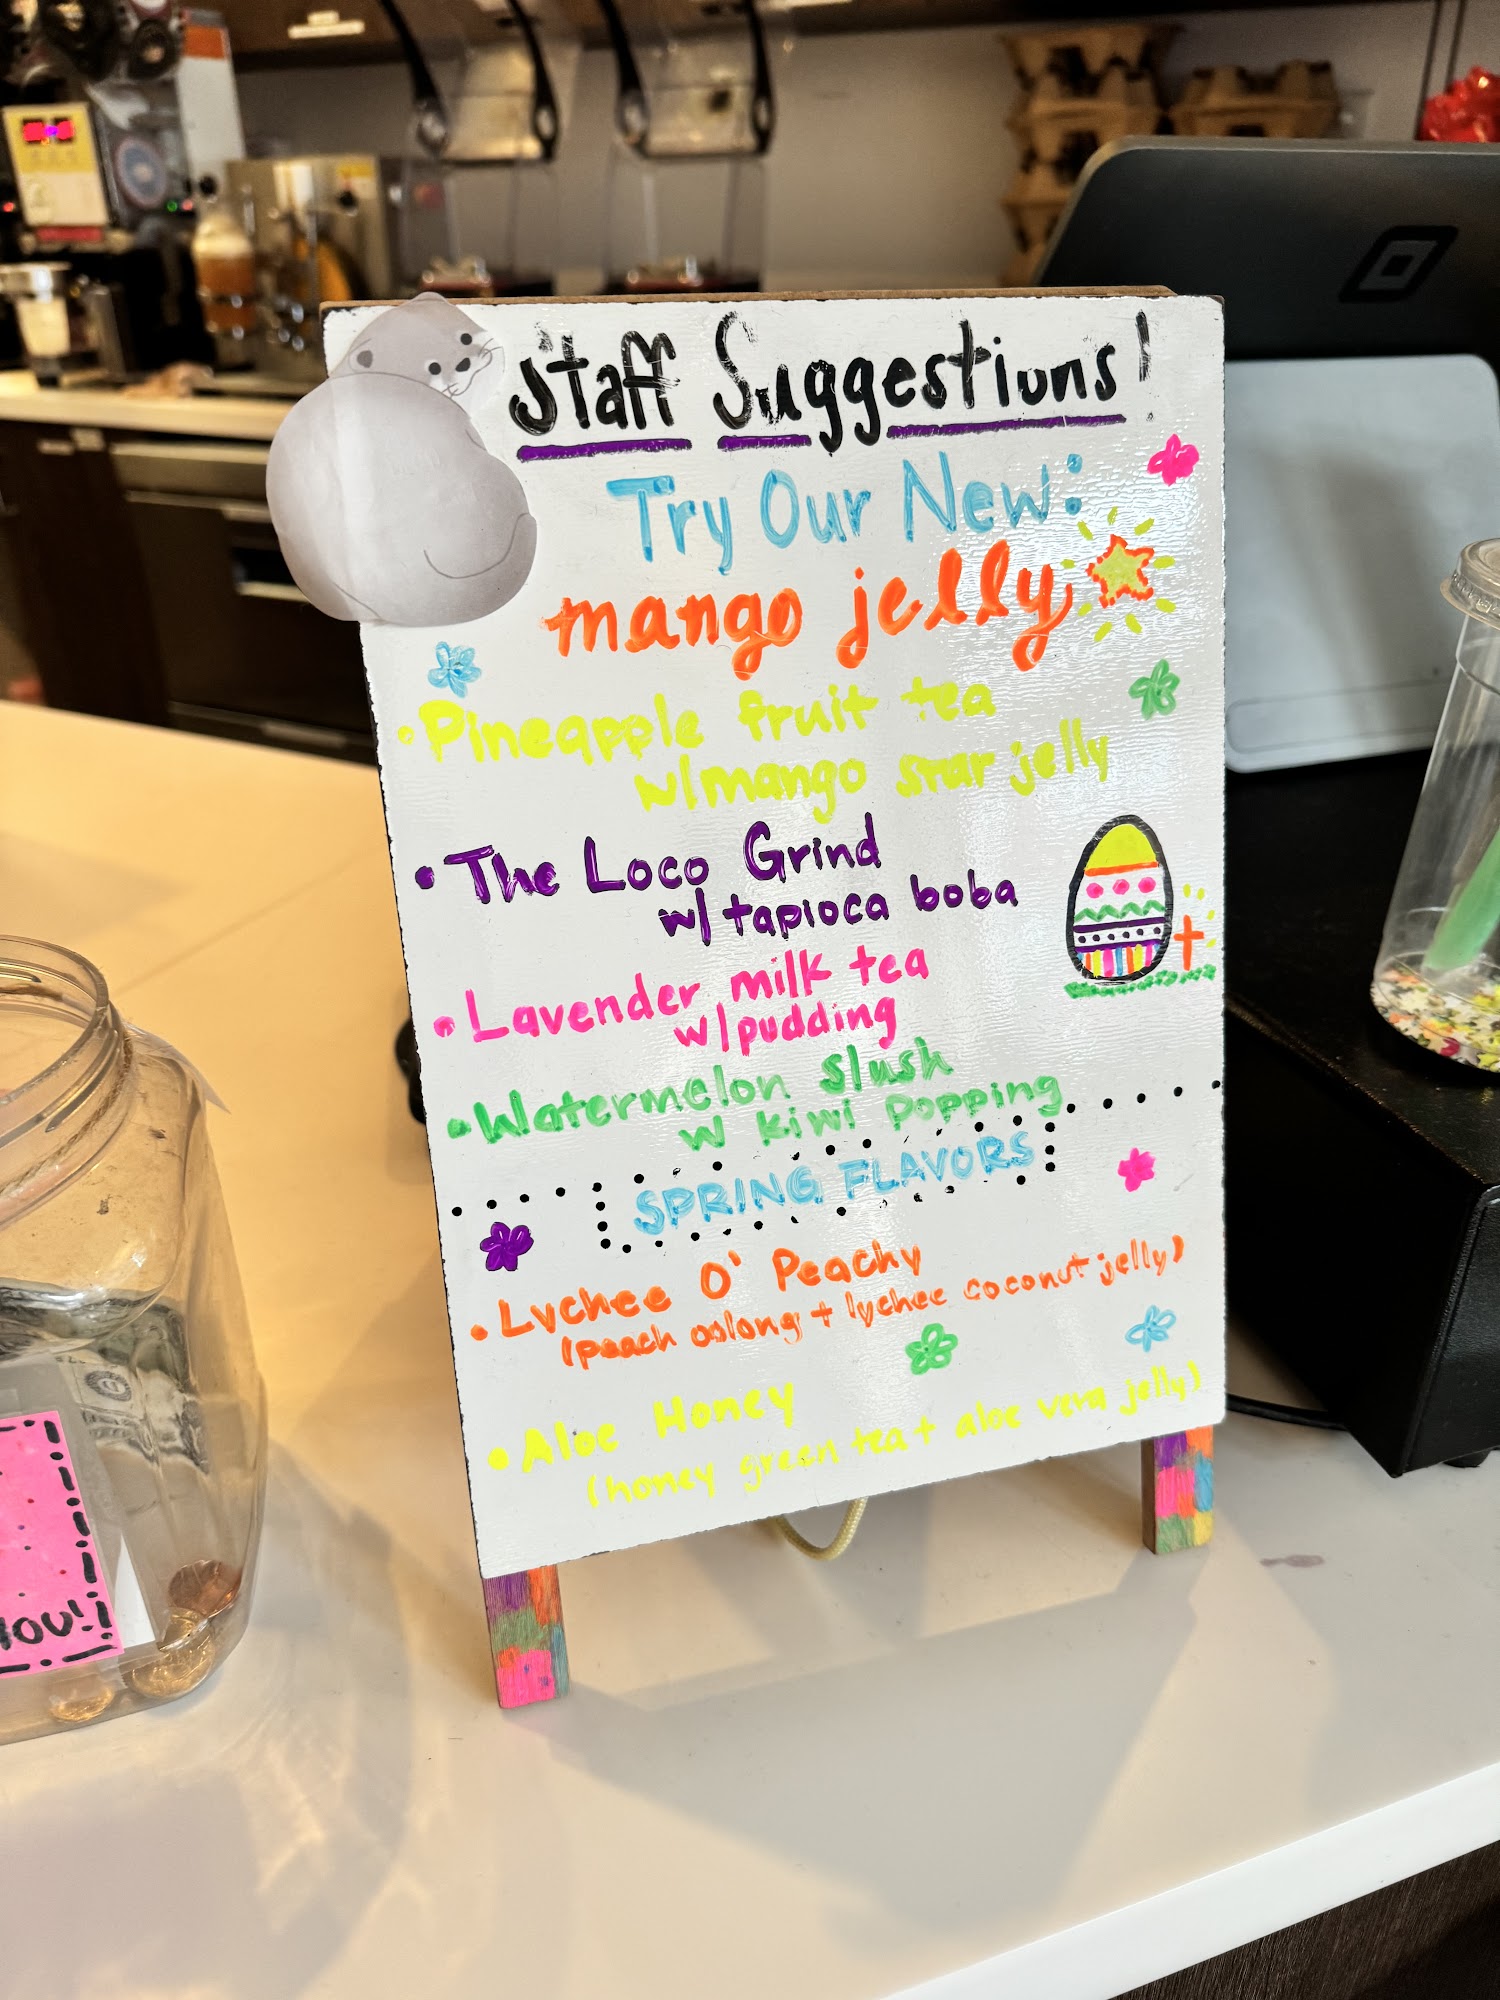 Staff Suggestions!
Try Our New:
mango jelly
• Pineapple fruit tea
w/mango star jelly
• The Loco Grind
w/ tapioca boba
• Lavender milk tea
w/pudding
• Watermelon slush
w kiwi popping
SPRING FLAVORS
• Lychee O' Peachy
(peach oolong + lychee coconut jelly)
• Aloe Honey
(honey green tea + aloe vera jelly)